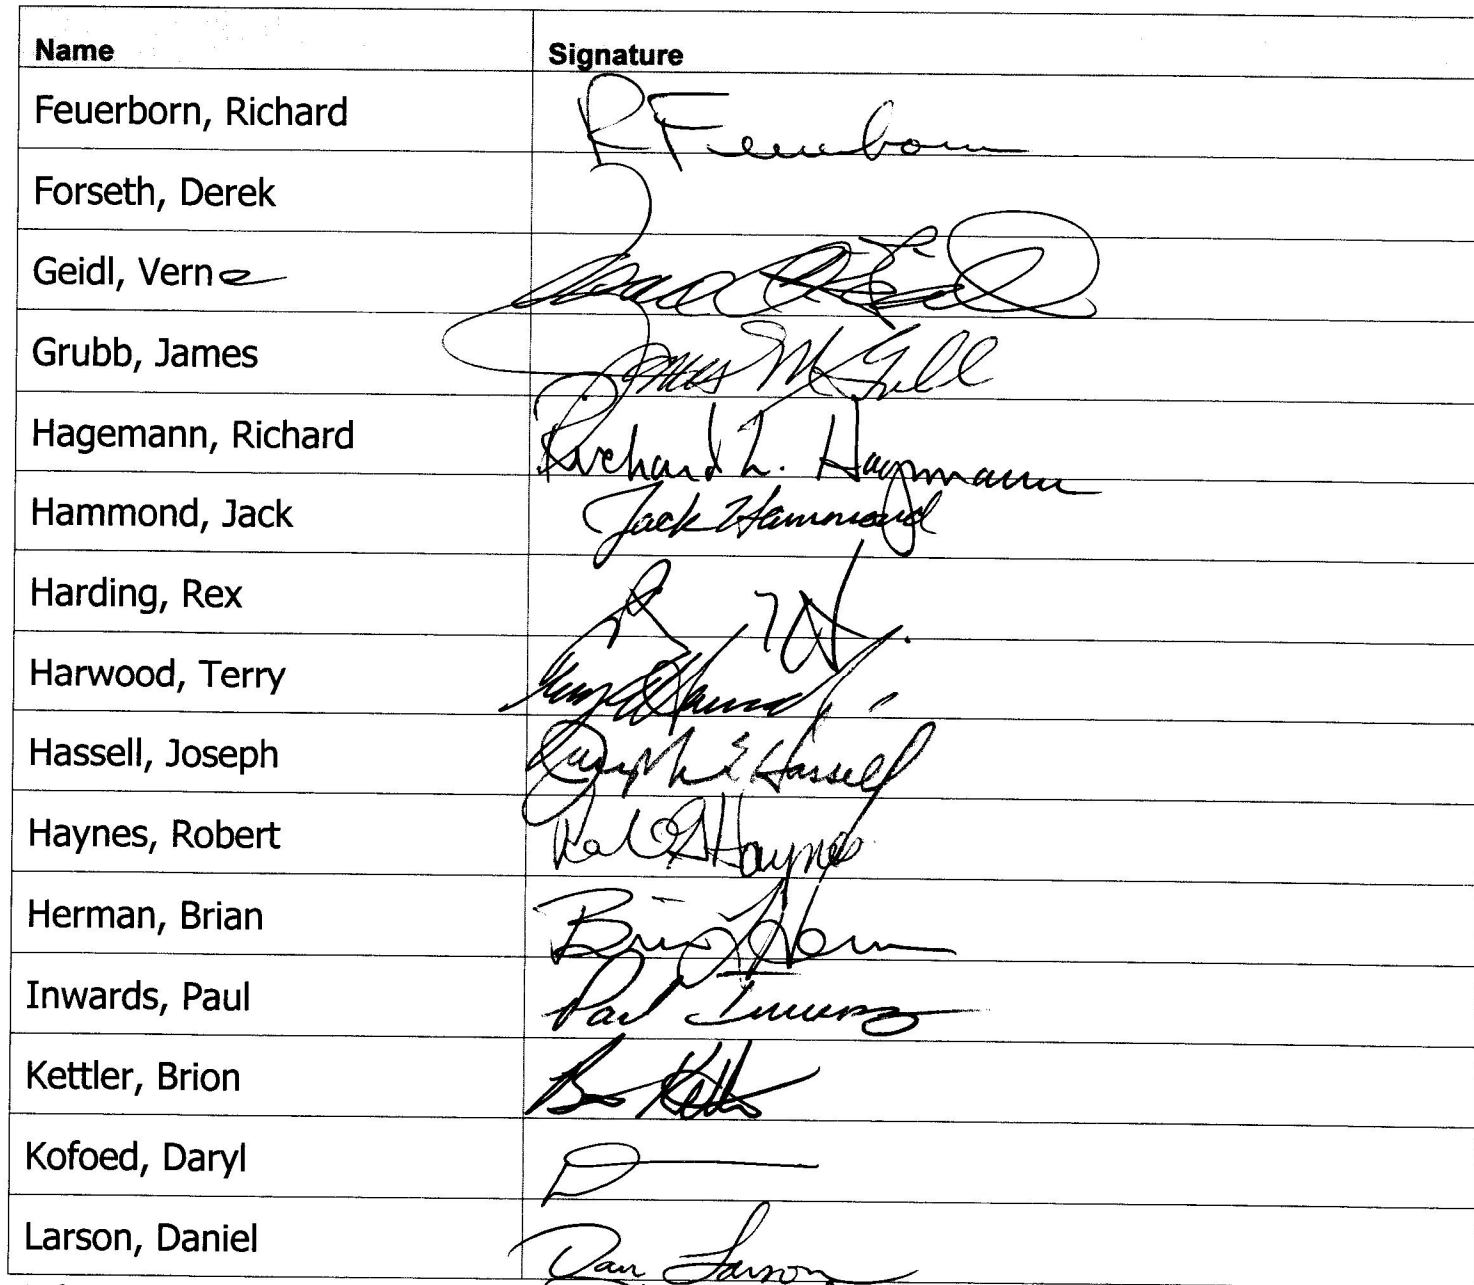 Name Signature
Feuerborn, Richard R Feuerborn
Forseth, Derek
Geidl, Verne
Grubb, James James
Hagemann, Richard Richard L. Hagemann
Hammond, Jack Jack Hammond
Harding, Rex
Harwood, Terry
Hassell, Joseph Joseph E Hassell
Haynes, Robert Haynes
Herman, Brian
Inwards, Paul Paul
Kettler, Brion
Kofoed, Daryl D
Larson, Daniel Dan Larson